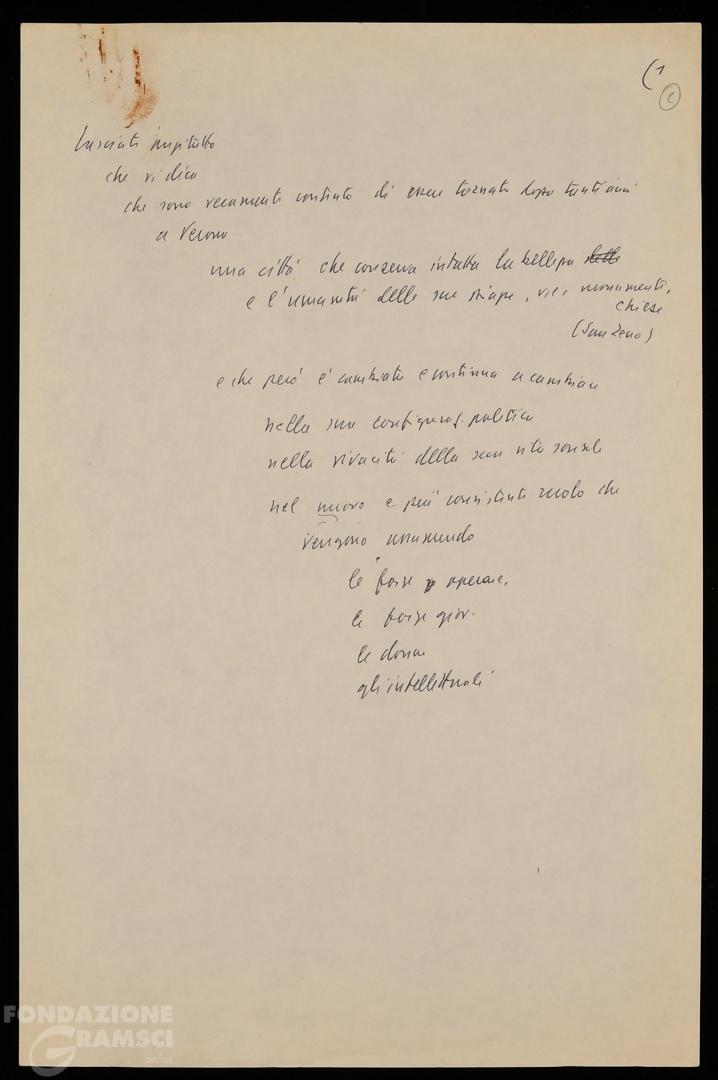 (1
Lasciate anzitutto
che vi dica
che sono veramente contento di essere tornato dopo tanti anni
a Verona
una città che conserva intatta la bellezza delle
e l'umanità delle sue piazze, vie, monumenti,
chiese
(San Zeno)
e che però è cambiata e continua a cambiare
nella sua configuraz. politica
nella vivacità della sua vita sociale
nel nuovo e più consistente ruolo che
vengono assumendo
le forze operaie,
le forze giov.
le donne
gli intellettuali
FONDAZIONE
GRAMSCI
onlus